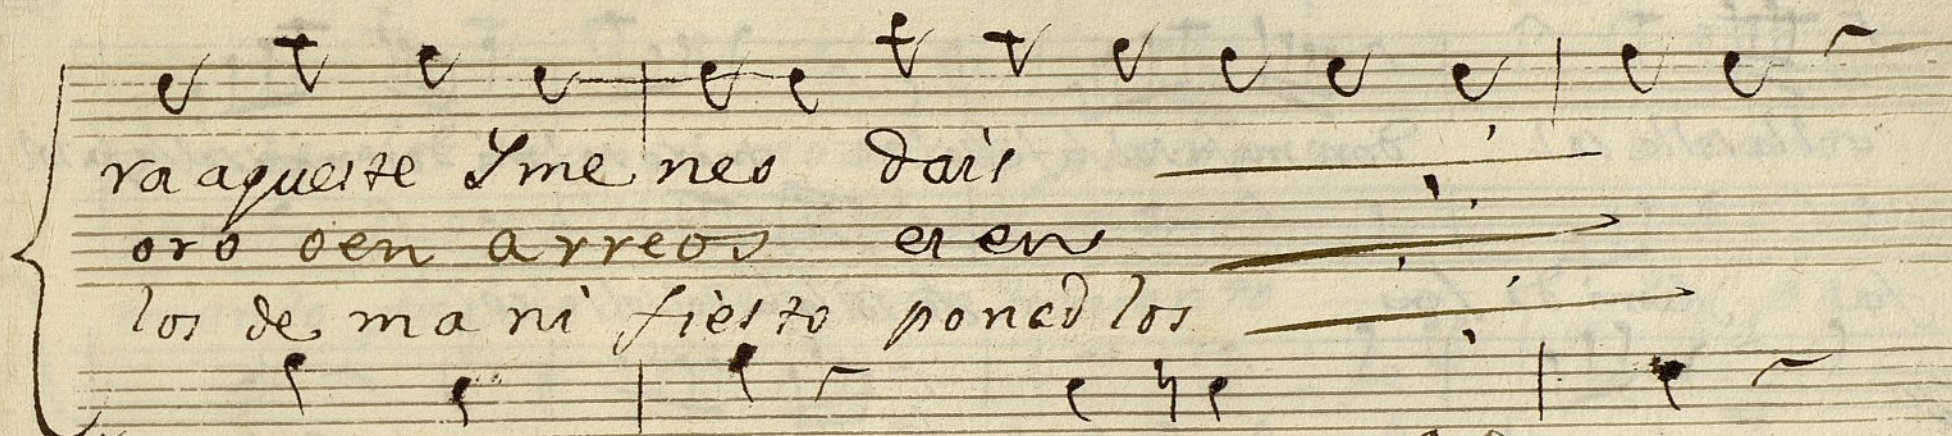 ra aqueste Yme neo dais
oro o en arreos ei en
los de ma ni fiesto poned los